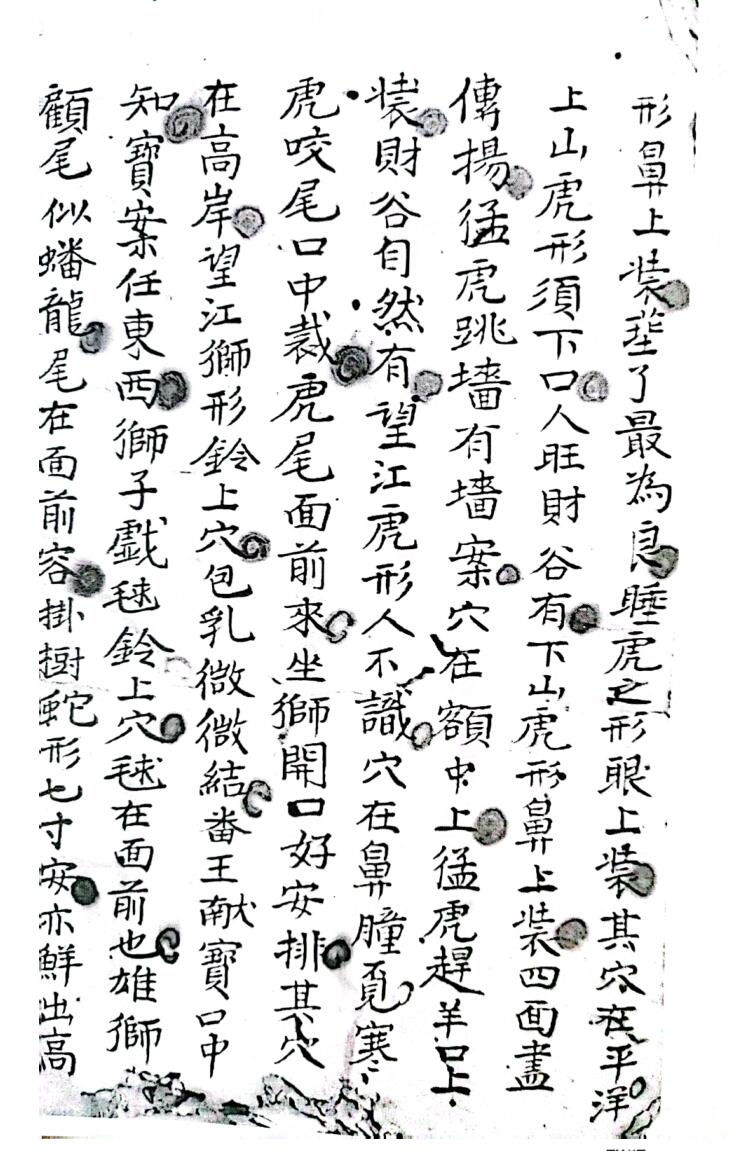 形鼻上装塟了最為良睡虎之形眼上装其穴在平洋
上山虎形須下口人旺財谷有下山虎形鼻上装四面盡
傳揚猛虎跳墻有墻案穴在額中上猛虎趕羊口上
装財谷自然有望江虎形人不識穴在鼻膧覓寒
虎咬尾口中裁虎尾面前來坐獅開口好安排其穴
在高岸望江獅形鈴上穴包乳微微結畨王献寶口中
知寶案任東西獅子戲毬鈴上穴毬在面前也雄獅
顧尾似蟠龍尾在面前容掛樹蛇形七寸安亦鮮出高